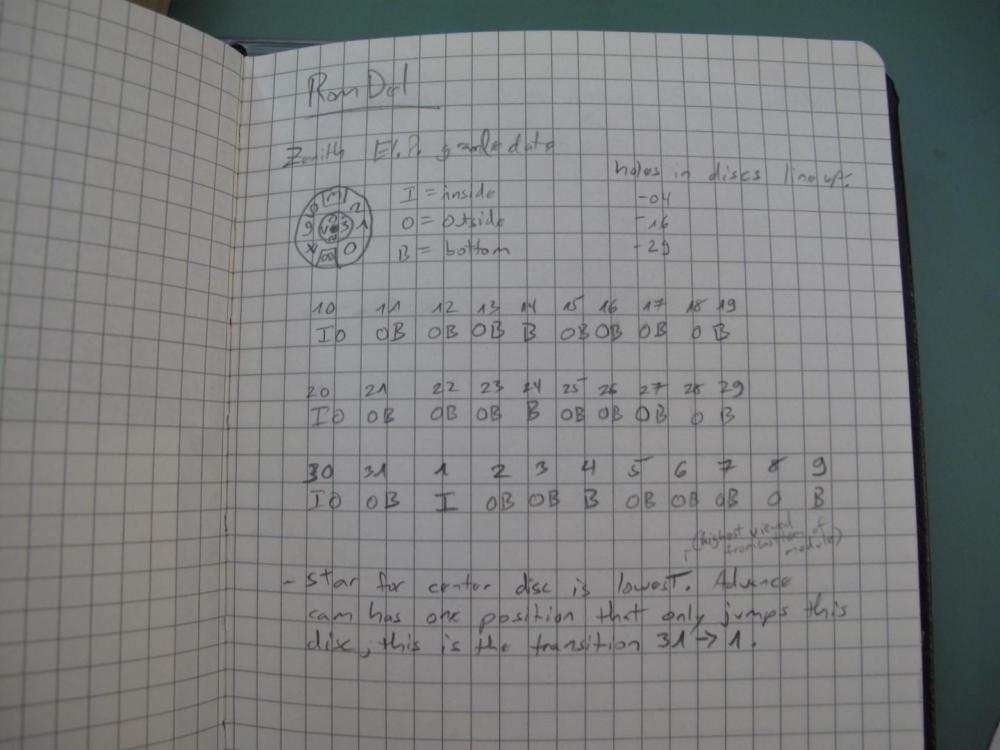 Zenith El.P. grande date
holes in discs line up:
I = inside
-04
O = outside
-16
B = bottom
-29
10 11 12 13 14 15 16 17 18 19
IO OB OB OB B OB OB OB O B
20 21 22 23 24 25 26 27 28 29
IO OB OB OB B OB OB OB O B
30 31 1 2 3 4 5 6 7 8 9
IO OB I OB OB B OB OB OB O B
(highest viewed
from bottom of
module)
- Star for center disc is lowest. Advance
cam has one position that only jumps this
disc, this is the transition 31 → 1.